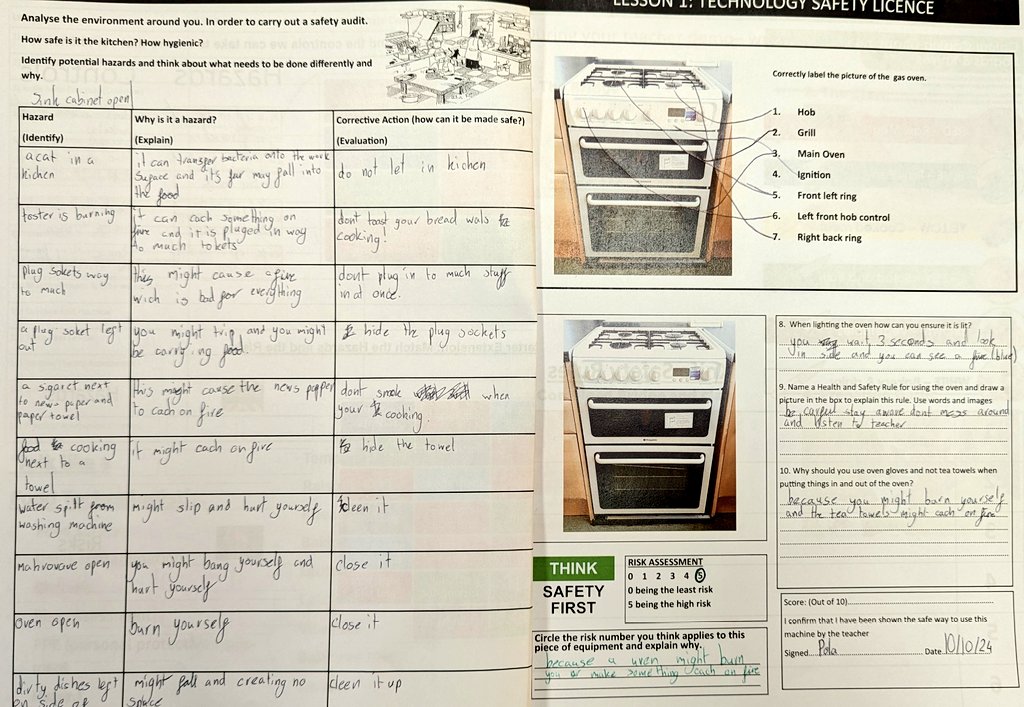 Analyse the environment around you. In order to carry out a safety audit.
How safe is it the kitchen? How hygienic?
Identify potential hazards and think about what needs to be done differently and
why.
Sink cabinet open
Hazard
(Identify)
Why is it a hazard?
(Explain)
Corrective Action (how can it be made safe?)
(Evaluation)
a cat in a
kichen
it can transfer bacteria onto the work
suface and it's fur may fall into
the food
do not let in kichen
toster is burning
it can cach something on
fire and it is pluged in way
to much tokets
dont toast your bread wals
cooking!
plug sokets way
to much
this might cause a fire
wich is bad for everything
dont plug in to much stuff
in at once.
a plug soket left
out
you might trip, and you might
be carrying food.
hide the plug sockets
a sigaret next
to news paper and
paper towel
this might cause the news papper
to cach on fire
dont smoke when
your cooking.
food cooking
next to a
towel
it might cach on fire
hide the towel
water spilt from
washing machine
might slip and hurt yourself
cleen it
mahrovave open
you might bang yourself and
hurt yourself
close it
oven open
burn yourself
close it
dirty dishes left
on side of
might fall and creating no
space
cleen it up
LESSON 1: TECHNOLOGY SAFETY LICENCE
Correctly label the picture of the gas oven.
1. Hob
2. Grill
3. Main Oven
4. Ignition
5. Front left ring
6. Left front hob control
7. Right back ring
8. When lighting the oven how can you ensure it is lit?
you wait 3 seconds and look
in side and you can see a fire (blue)
9. Name a Health and Safety Rule for using the oven and draw a
picture in the box to explain this rule. Use words and images
be careful stay aware dont mess around
and listen to teacher
10. Why should you use oven gloves and not tea towels when
putting things in and out of the oven?
because you might burn yourself
and the tea towels might cach on fire
THINK
SAFETY
FIRST
RISK ASSESSMENT
0 1 2 3 4 5
0 being the least risk
5 being the high risk
Circle the risk number you think applies to this
piece of equipment and explain why.
because a uven might burn
you or make something cach on fire
Score: (Out of 10)
I confirm that I have been shown the safe way to use this
machine by the teacher
Signed Pola Date 10/10/24